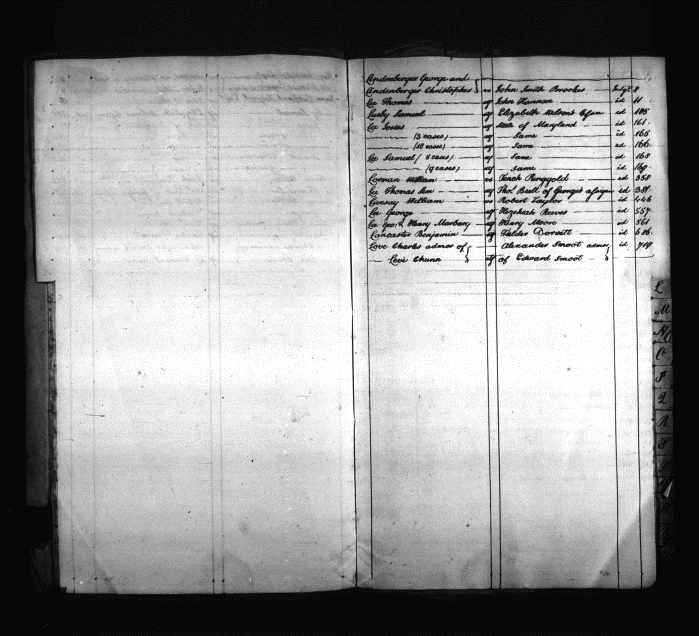 Lindenberger George and
Lindenberger Christopher } vs John Smith Brookes Judgt 8
Lee Thomas vs John Hannon id 11
Lusby Samuel vs Elizabeth id 105
Lee Josias vs State of Maryland id 161
(3 cases) vs Same id 165
(10 cases) vs Same id 166
Lee Samuel (5 cases) vs Same id 168
(9 cases) vs Same id 169
Looman William vs Tench Ringgold id 358
Lee Thomas Sim vs Thos. Beall of George assign id 381
Livesey William vs Robert Taylor id 446
Lee George vs Hezekiah Reeves id 557
Lee Geo. & Henry Marbury vs Henry Moore id 561
Lancaster Benjamin vs Fielder Dorsett id 606
Love Charles admor of { Alexander Smoot admr } id 719
Levi Chunn } vs of Edward Smoot }
L
M
N
O
P
Q
R
S